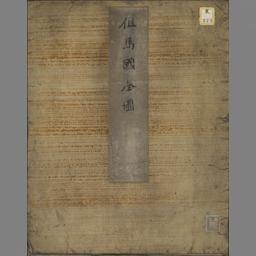 但馬國全圖